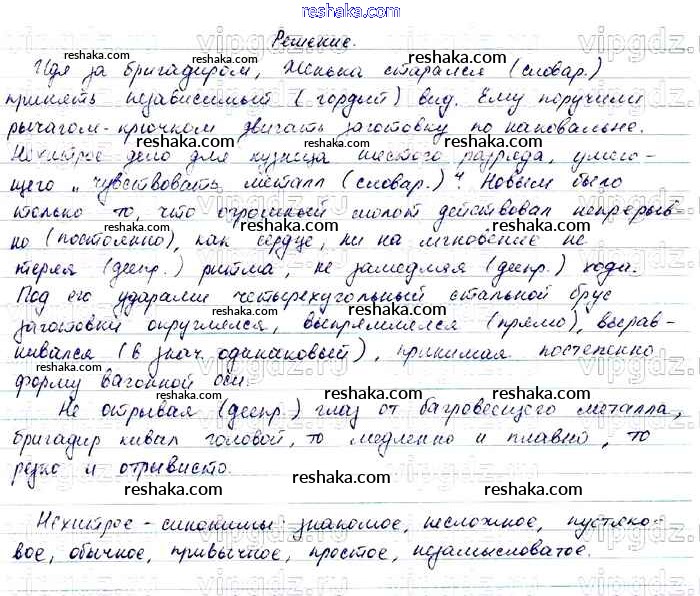 reshaka.com
Решение.
Идя за бригадиром, Женька старался (словар.)
принять независимый (гордый) вид. Ему поручили
рычагом-крючком двигать заготовку по наковальне.
Нехитрое дело для кузнеца шестого разряда, умею-
щего „чувствовать металл (словар.)". Новым было
только то, что огромный молот действовал непрерыв-
но (постоянно), как сердце, ни на мгновение не
теряя (деепр.) ритма, не замедляя (деепр.) хода.
Под его ударами четырехугольный стальной брус
заготовки округлялся, выпрямлялся (прямо), вырав-
нивался (в знач. одинаковый), принимая постепенно
форму вагонной оси.
Не отрывая (деепр.) глаз от багровеющего металла,
бригадир кивал головой, то медленно и плавно, то
резко и отрывисто.
Нехитрое - синонимы: знакомое, несложное, пустяко-
вое, обычное, привычное, простое, незамысловатое.